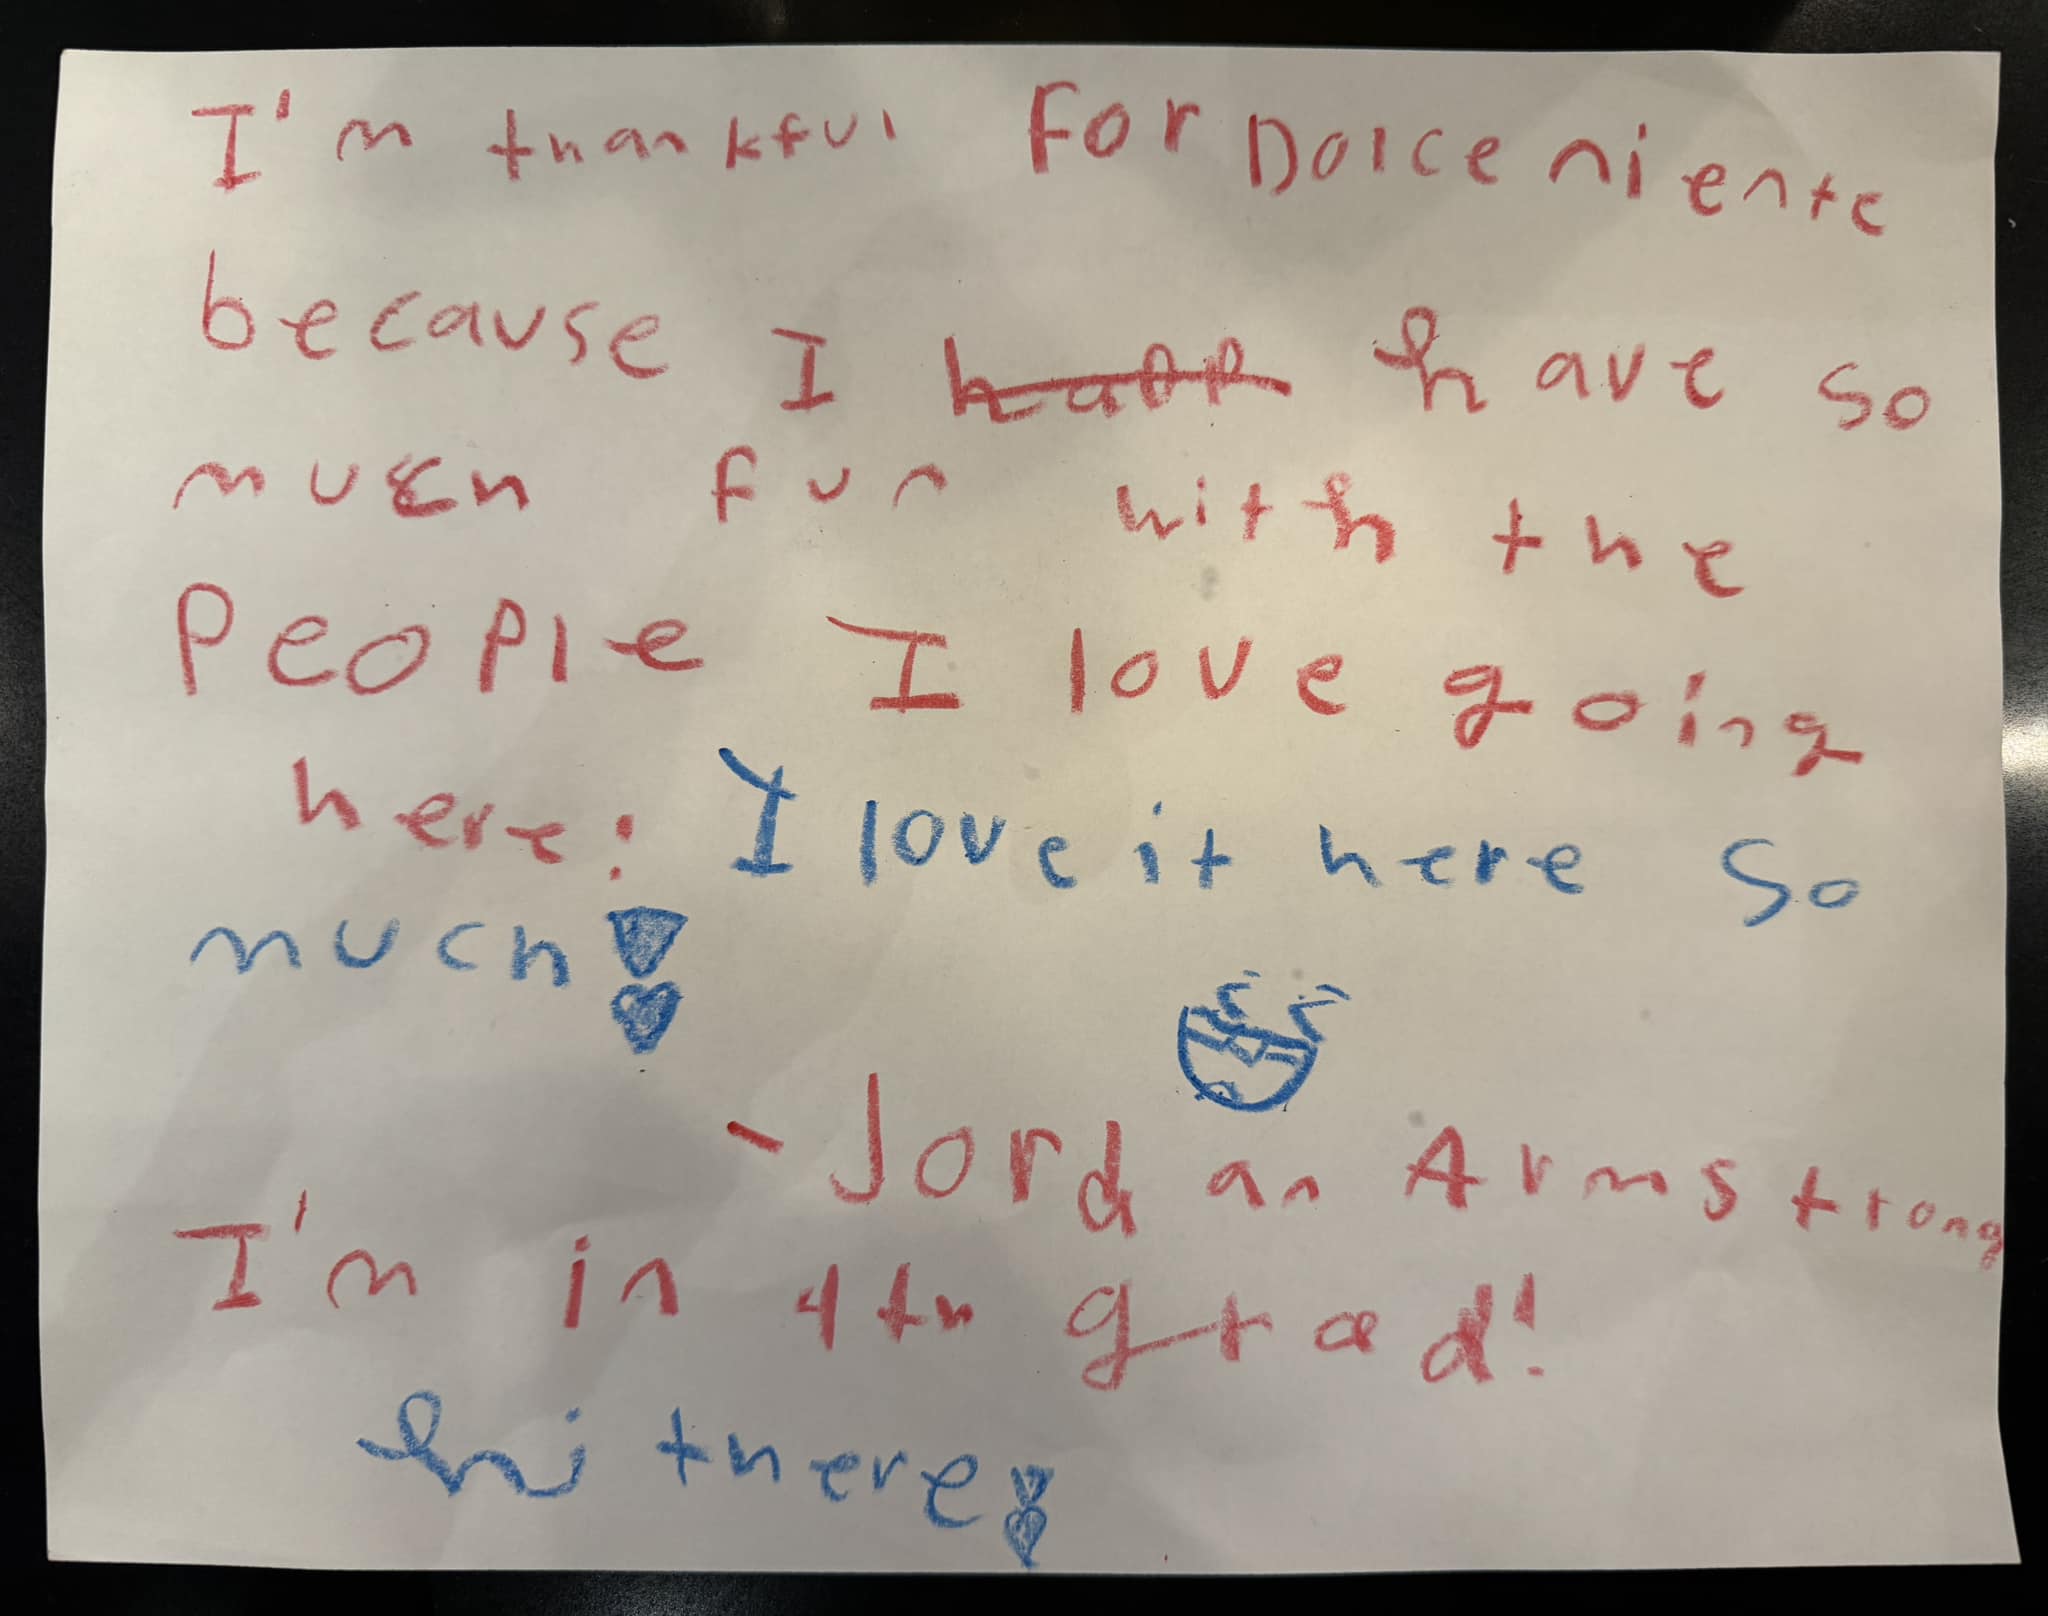 I'm thankful For Dolce niente
because I have so
much fun with the
People I love going
here! I love it here so
much!
- Jordan Armstrong
I'm in 4th grad!
hi there!